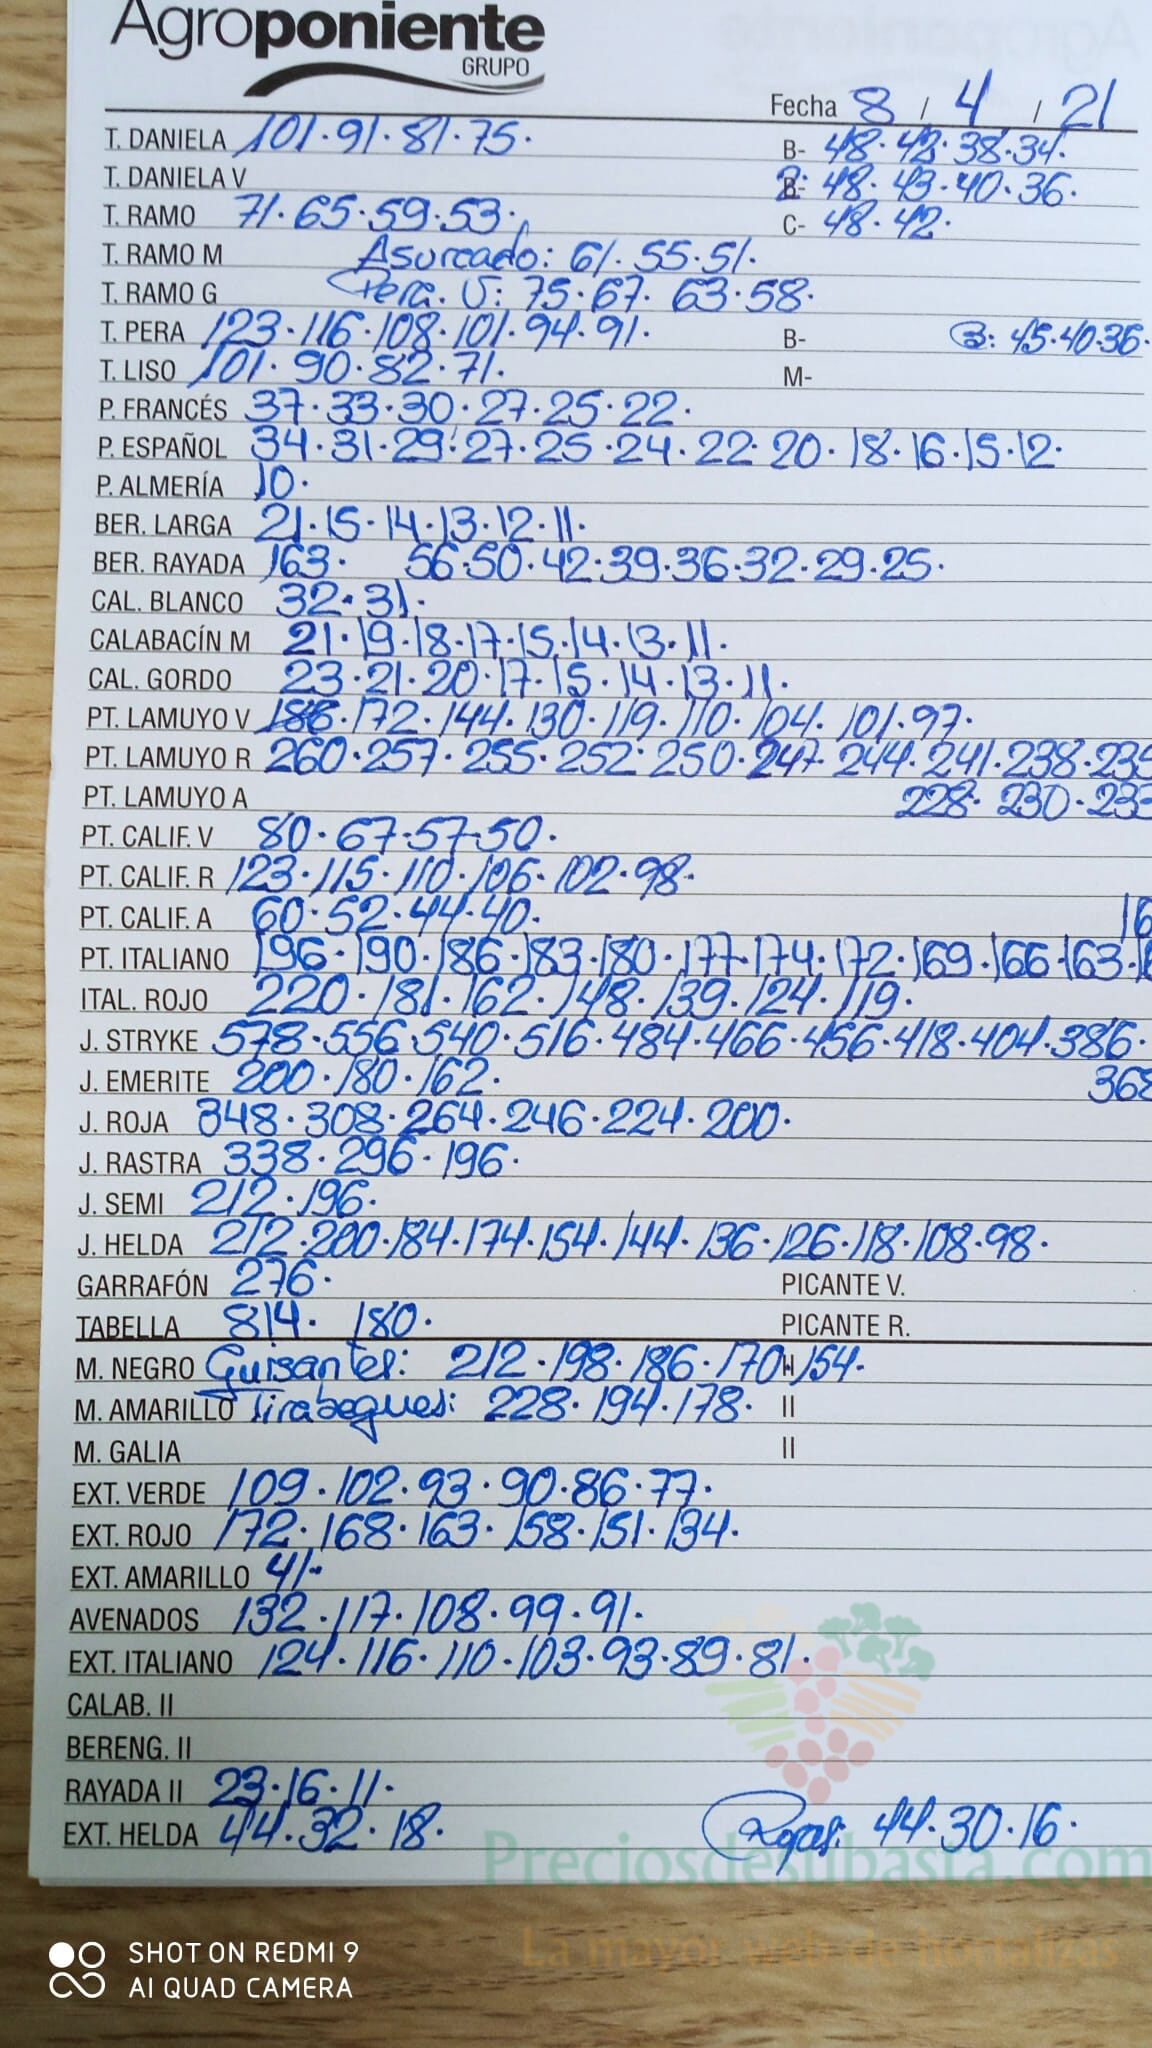 Agroponiente
GRUPO
Fecha 8 / 4 / 21
T. DANIELA 101·91·81·75· B- 48·43·38·34·
T. DANIELA V 2: 48·43·40·36·
T. RAMO 71·65·59·53· C- 48·42·
T. RAMO M Asurcado: 61·55·51·
T. RAMO G Pera. V: 75·67·63·58·
T. PERA 123·116·108·101·94·91· B- B: 45·40·36·
T. LISO 101·90·82·71· M-
P. FRANCÉS 37·33·30·27·25·22·
P. ESPAÑOL 34·31·29·27·25·24·22·20·18·16·15·12·
P. ALMERÍA 10·
BER. LARGA 21·15·14·13·12·11·
BER. RAYADA 163· 56·50·42·39·36·32·29·25·
CAL. BLANCO 32·31·
CALABACÍN M 21·19·18·17·15·14·13·11·
CAL. GORDO 23·21·20·17·15·14·13·11·
PT. LAMUYO V 186·172·144·130·119·110·104·101·97·
PT. LAMUYO R 260·257·255·252·250·247·244·241·238·235
PT. LAMUYO A 228·230·233
PT. CALIF. V 80·67·57·50·
PT. CALIF. R 123·115·110·106·102·98·
PT. CALIF. A 60·52·44·40· 16
PT. ITALIANO 196·190·186·183·180·177·174·172·169·166·163·
ITAL. ROJO 220·181·162·148·139·124·119·
J. STRYKE 578·556·540·516·484·466·456·418·404·386·
J. EMERITE 200·180·162· 368
J. ROJA 348·308·264·246·224·200·
J. RASTRA 338·296·196·
J. SEMI 212·196·
J. HELDA 212·200·184·174·154·144·136·126·118·108·98·
GARRAFÓN 276· PICANTE V.
TABELLA 814· 180· PICANTE R.
M. NEGRO Guisantes: 212·198·186·170·154· II
M. AMARILLO Tirabeques: 228·194·178· II
M. GALIA II
EXT. VERDE 109·102·93·90·86·77·
EXT. ROJO 172·168·163·158·151·134·
EXT. AMARILLO 41·
AVENADOS 132·117·108·99·91·
EXT. ITALIANO 124·116·110·103·93·89·81·
CALAB. II
BERENG. II
RAYADA II 23·16·11·
EXT. HELDA 44·32·18· Rojas: 44·30·16·
Preciosdesubasta.com
La mayor web de hortalizas
SHOT ON REDMI 9
AI QUAD CAMERA